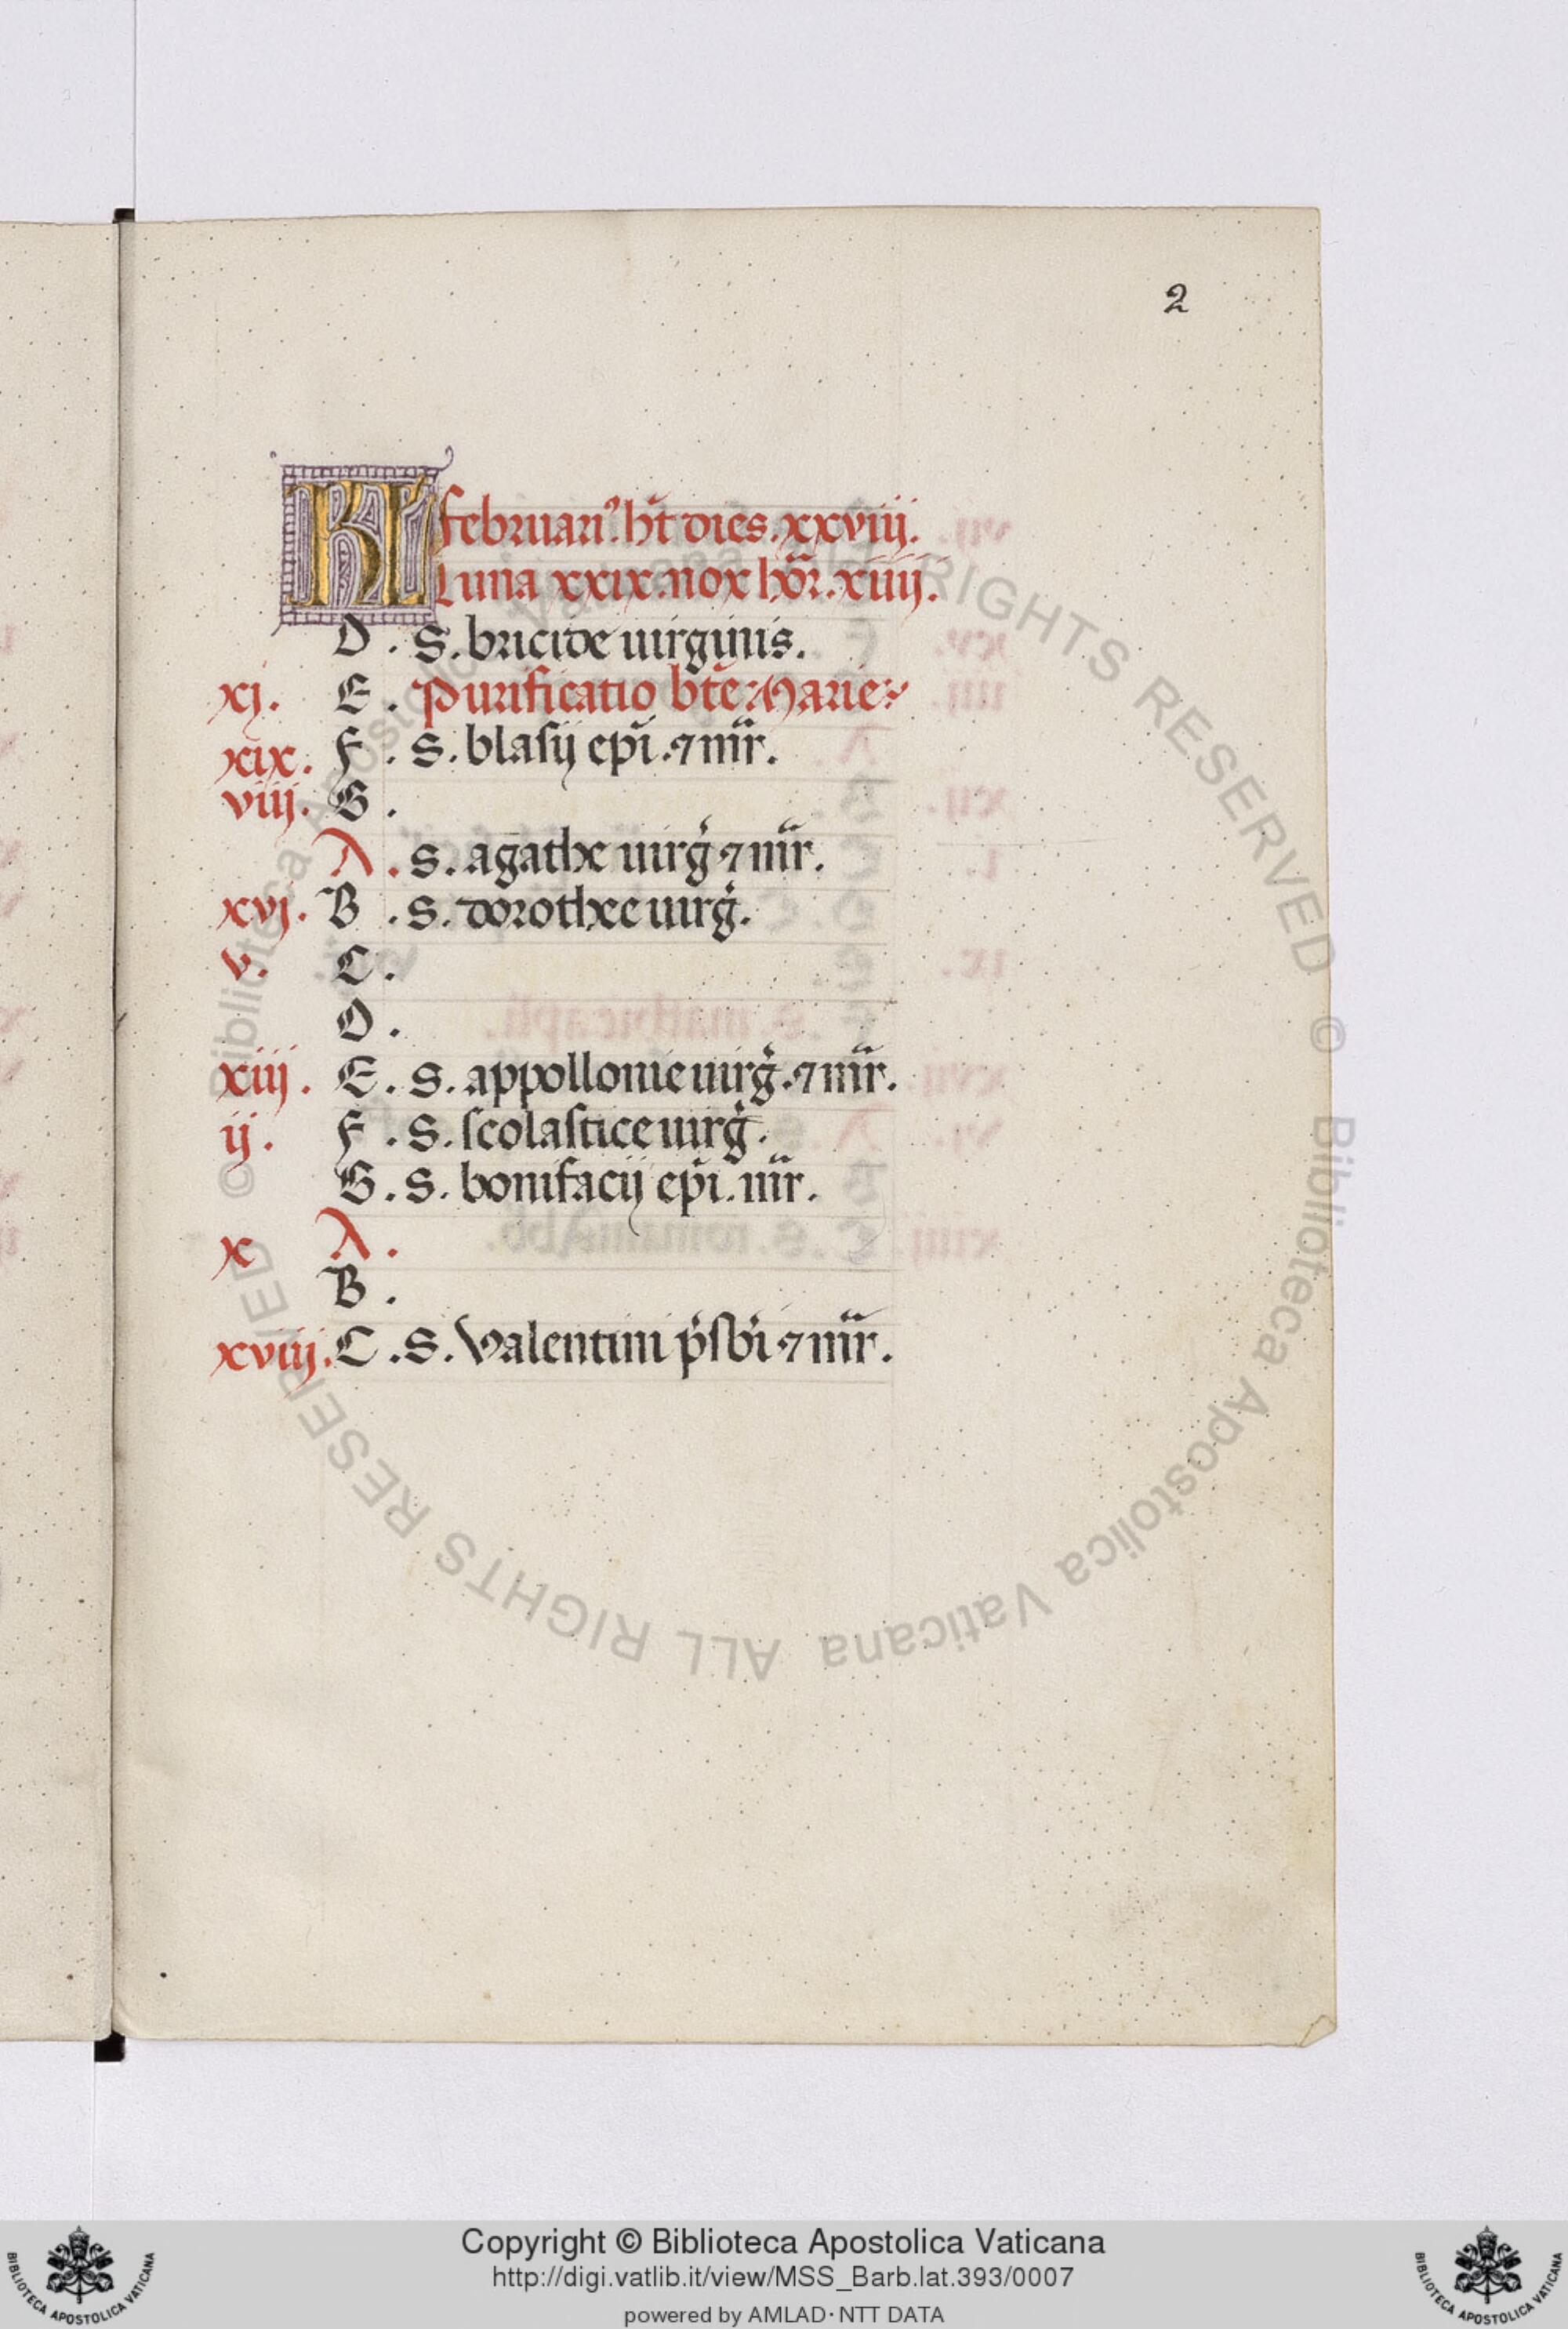 2
Kl februariꝰ. ht̄ dies. xxviij.
Luna xxix. nox hor̄. xiiij.
D. S. bricide uirginis.
xj. E. Purificatio bt̄e Marie
xix. F. S. blasij epī. ⁊ mr̄.
viij. G.
A. S. agathe uirḡ ⁊ mr̄.
xvj. B. S. dorothee uirḡ.
v. C.
D.
xiij. E. S. appollonie uirḡ. ⁊ mr̄.
ij. F. S. scolastice uirḡ.
G. S. bonifacij epī. mr̄.
x A.
B.
xviij. C. S. Valentini p̄sbī ⁊ mr̄.
© Biblioteca Apostolica Vaticana ALL RIGHTS RESERVED
© Biblioteca Apostolica Vaticana ALL RIGHTS RESERVED
Copyright © Biblioteca Apostolica Vaticana
http://digi.vatlib.it/view/MSS_Barb.lat.393/0007
powered by AMLAD·NTT DATA
BIBLIOTECA APOSTOLICA VATICANA
BIBLIOTECA APOSTOLICA VATICANA